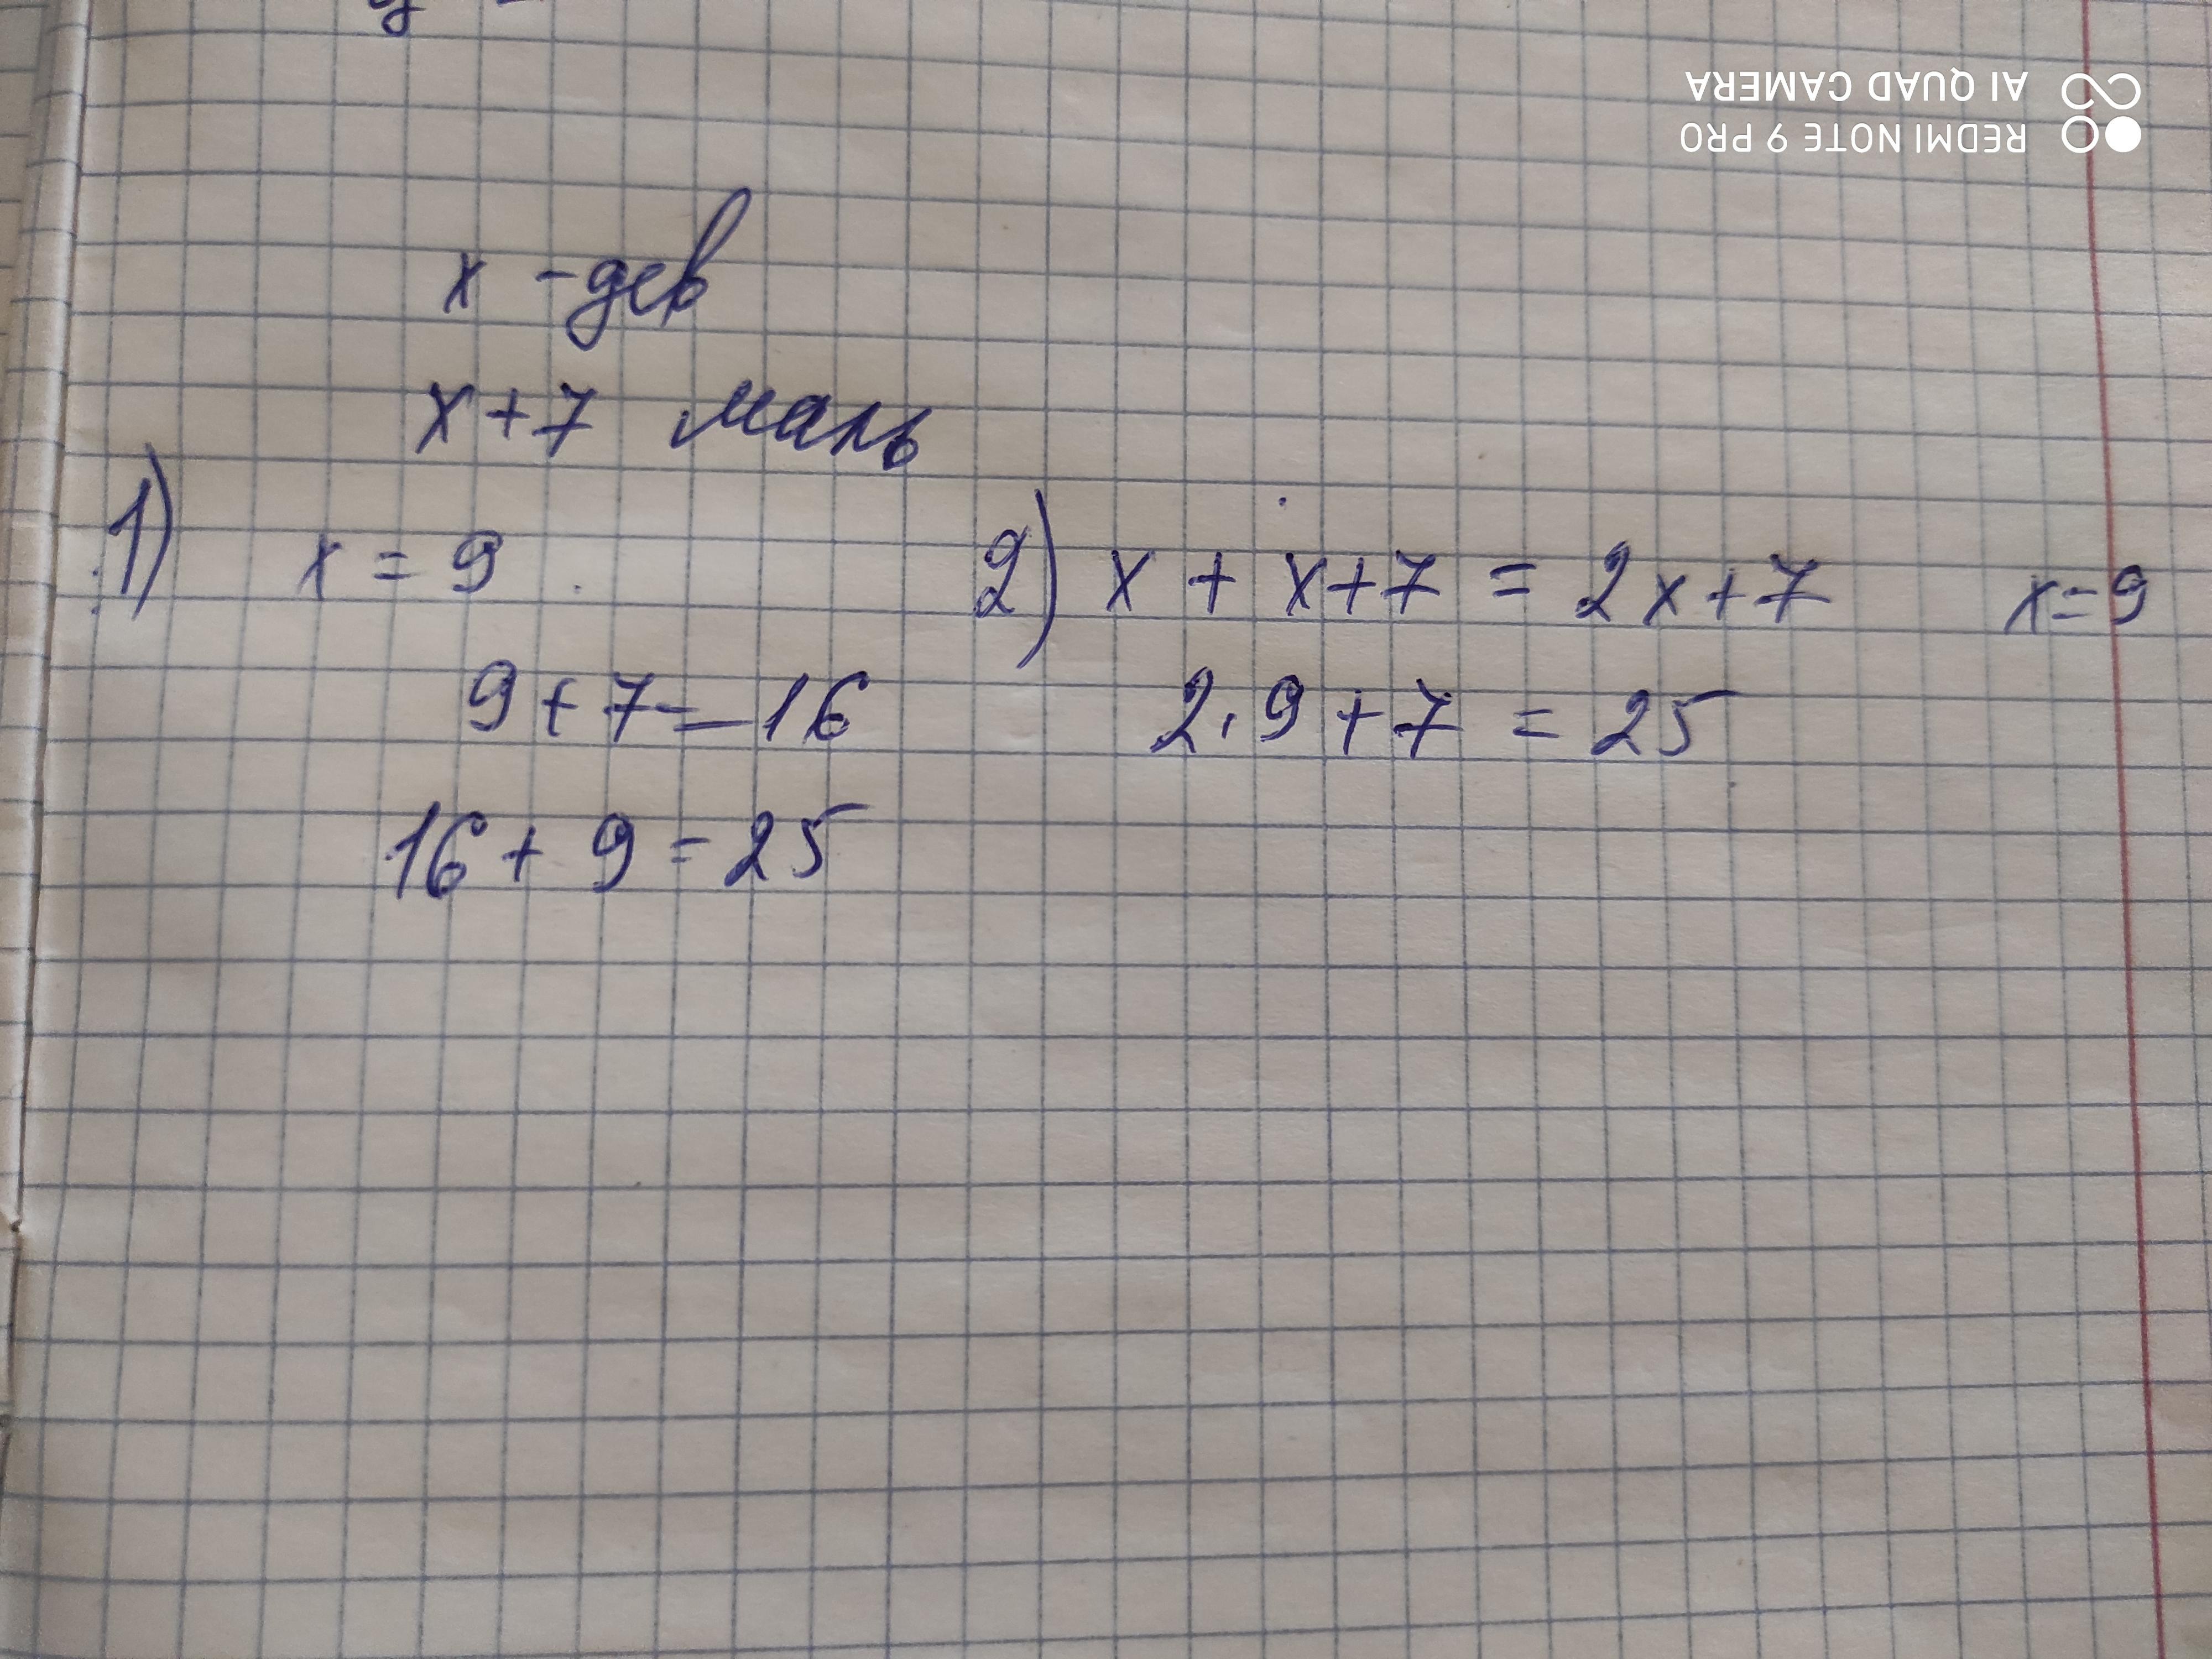 REDMI NOTE 9 PRO
AI QUAD CAMERA
x - дев
x + 7 маль
1) x = 9
9 + 7 = 16
16 + 9 = 25
2) x + x + 7 = 2x + 7 x = 9
2 · 9 + 7 = 25